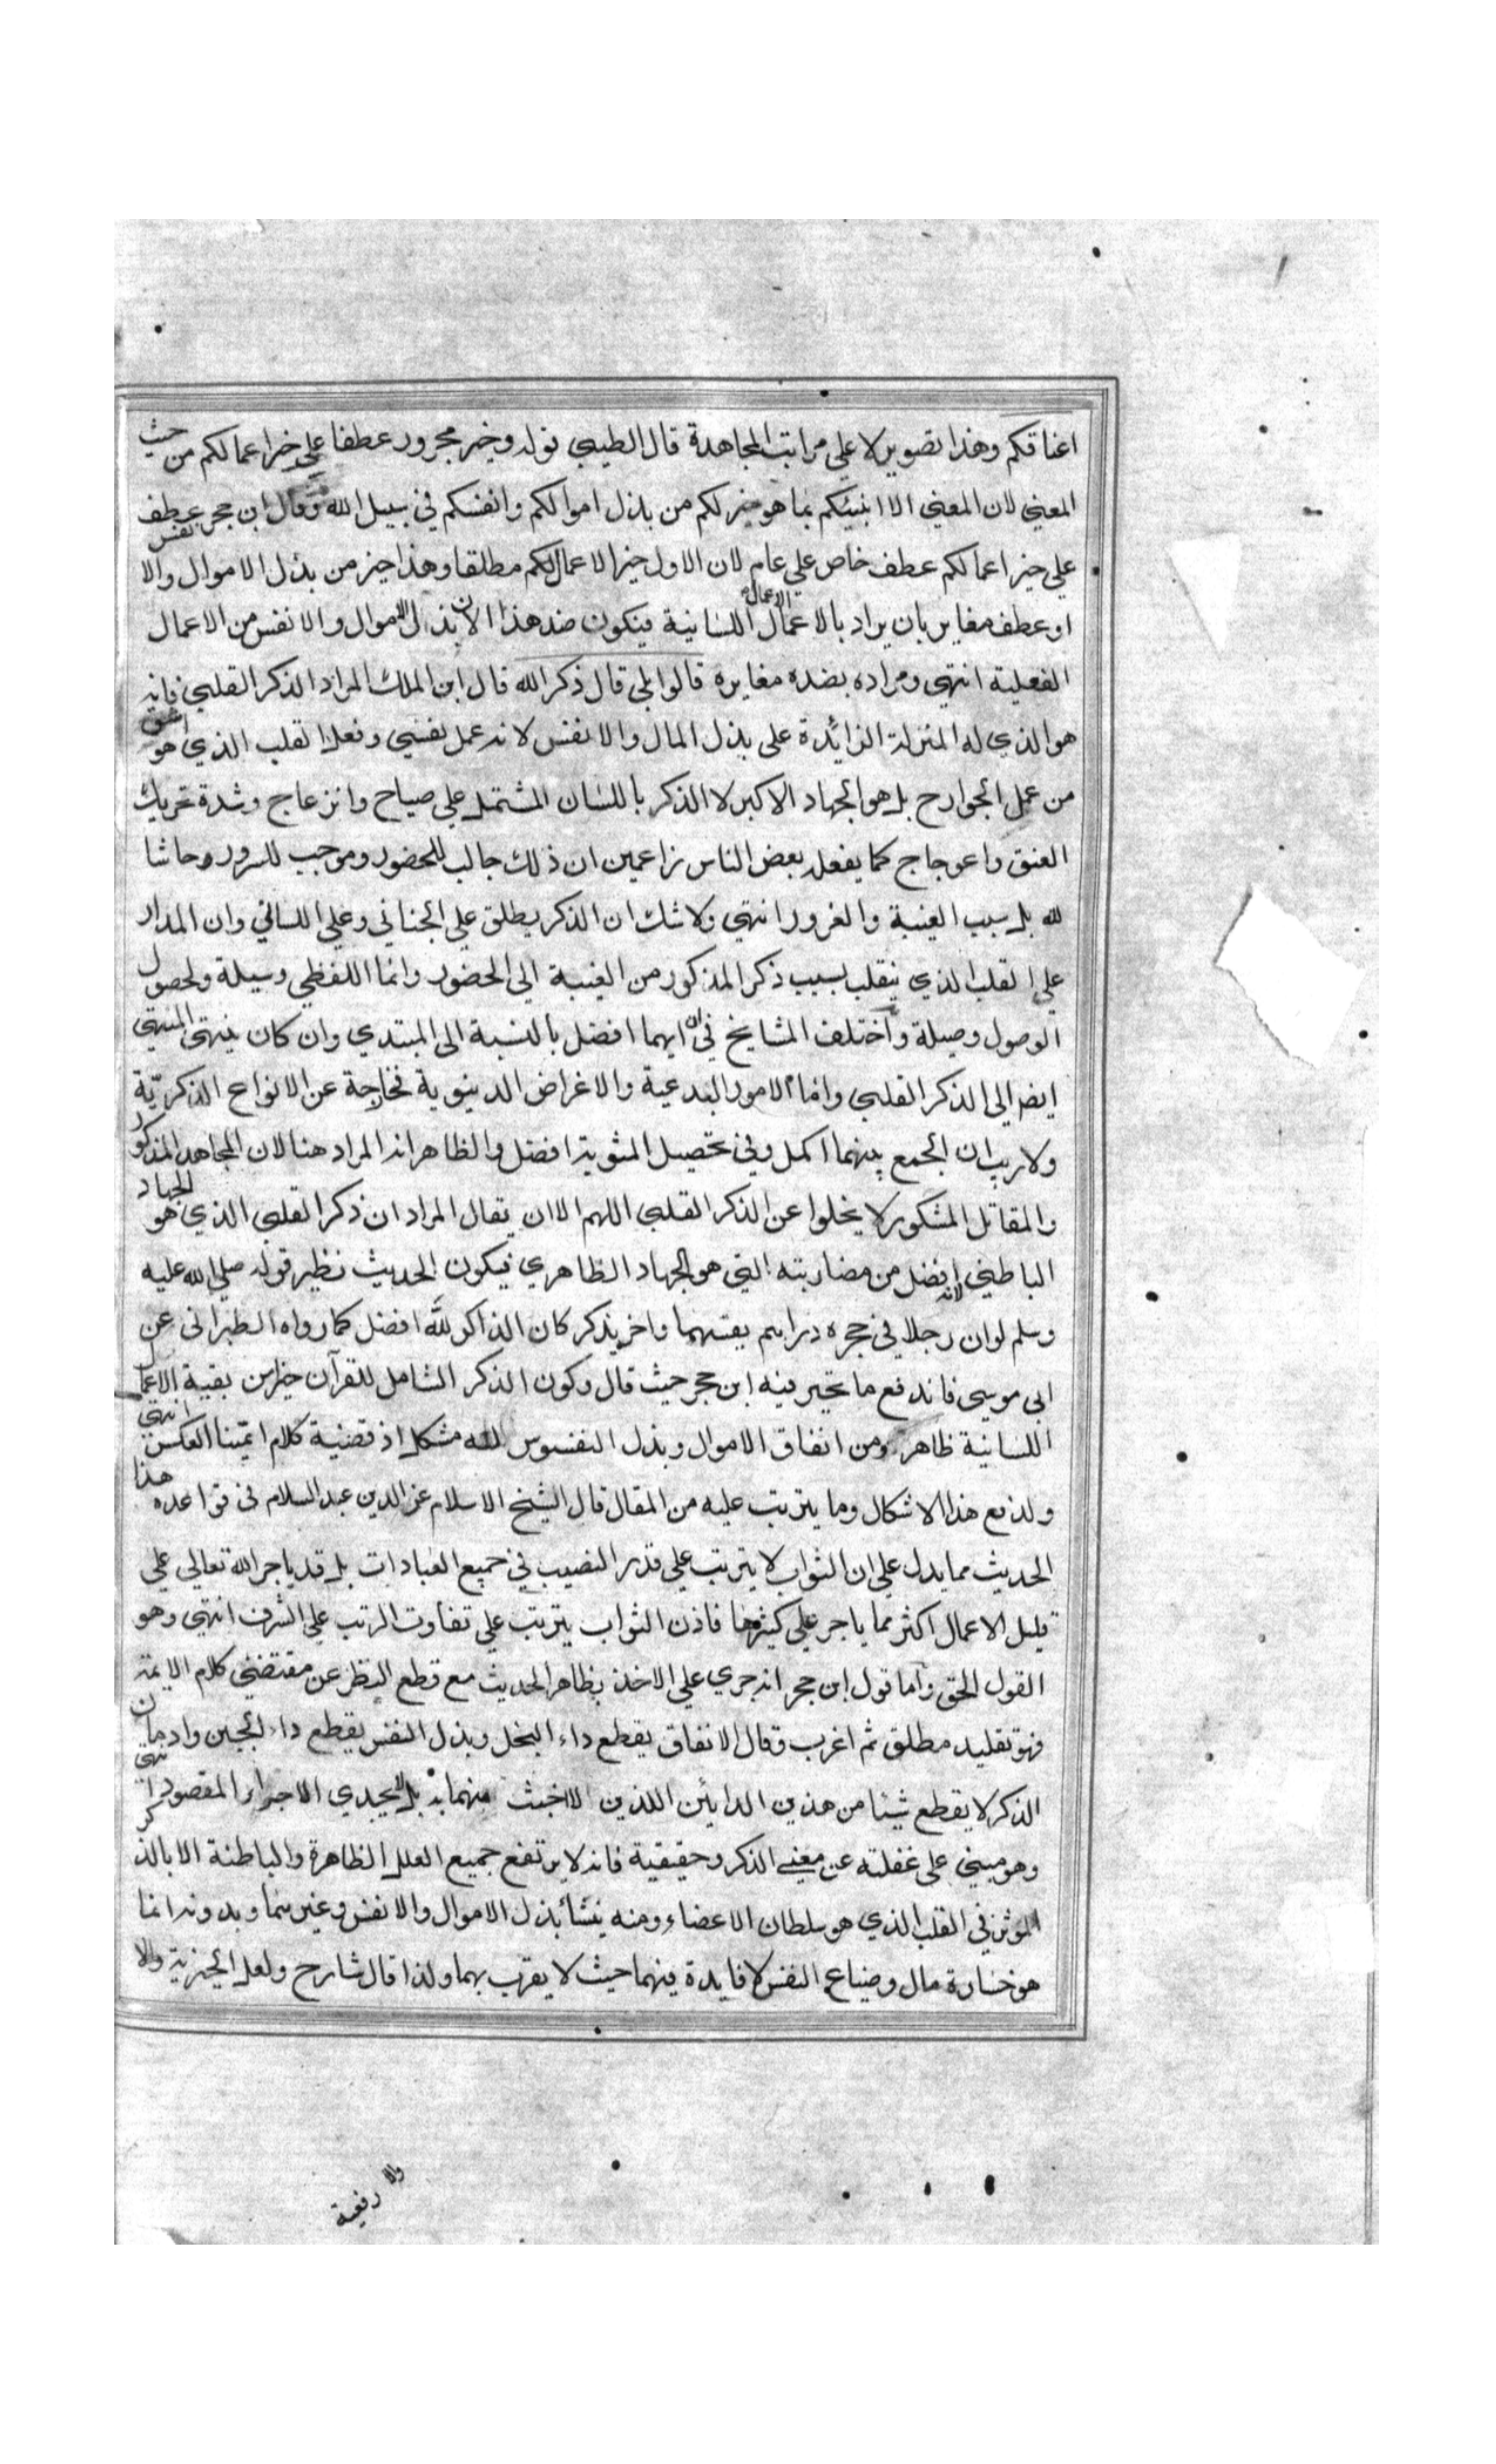 اعناقكم وهذا تصوير لا على مراتب المجاهدة قال الطيبي قوله وخير مجرور عطفا على خير اعمالكم من حيث
المعني لان المعني الا انبئكم بما هو خير لكم من بذل اموالكم وانفسكم في سبيل الله وقال ابن حجر عطف
علي خير اعمالكم عطف خاص علي عام لان الاول خير الاعمال لكم مطلقا وهذا خير من بذل الاموال والا نفس
او عطف مغاير بان يراد بالاعمال الاعمال اللسانية فيكون ضد هذا لان بذل الاموال والانفس من الاعمال
الفعلية انتهي ومراده بضده مغايره قالوا بلي قال ذكر الله قال ابن الملك المراد الذكر القلبي فانه
هو الذي له المنزلة الزائدة على بذل المال والانفس لانه عمل نفسي وفعل القلب الذي هو اشق
من عمل الجوارح بل هو الجهاد الاكبر لا الذكر باللسان المشتمل علي صياح وانزعاج وشدة تحريك
العنق واعوجاج كما يفعله بعض الناس زاعمين ان ذلك جالب للحضور وموجب للسرور وحاشا
لله بل سبب الغيبة والغرور انتهي ولا شك ان الذكر يطلق علي الجناني وعلي اللساني وان المدار
علي القلب الذي ينقلب بسبب ذكر المذكور من الغيبة الي الحضور وانما اللفظي وسيلة ولحصول
الوصول وصيلة واختلف المشايخ في ان ايهما افضل بالنسبة الي المبتدي وان كان ينتهي المنتهي
ايضا الي الذكر القلبي واما الامور البدعية والاغراض الدينوية فخارجة عن الانواع الذكريّة
ولا ريب ان الجمع بينهما اكمل وفي تحصيل المثوبة افضل والظاهر انه المراد هنا لان المجاهد المذكور
والمقاتل المشكور لا يخلوا عن الذكر القلبي اللهم الا ان يقال المراد ان ذكر القلبي الذي هو الجهاد
الباطني افضل من مضاربته التي هو الجهاد الظاهري فيكون الحديث نظير قوله صلي الله عليه
وسلم لو ان رجلا في حجره دراهم يقسمها واخر يذكر كان الذاكر لله افضل كما رواه الطبراني عن
ابي موسي فاندفع ما تحير فيه ابن حجر حيث قال وكون الذكر الشامل للقرآن خير من بقية الاعمال
اللسانية ظاهر ومن انفاق الاموال وبذل النفوس لله مشكل اذ قضية كلام ائمتنا العكس انتهي
ولدفع هذا الاشكال وما يترتب عليه من المقال قال الشيخ الاسلام عز الدين عبد السلام في قواعده هذا
الحديث مما يدل علي ان الثواب لا يترتب علي قدر النصيب في جميع العبادات بل قد ياجر الله تعالي علي
قليل الاعمال اكثر مما ياجر علي كثيرها فاذن الثواب يترتب علي تفاوت الرتب علي الشرف انتهي وهو
القول الحق واما قول ابن حجر انه جري علي الاخذ بظاهر الحديث مع قطع النظر عن مقتضي كلام الايمة
فهو تقليد مطلق ثم اغرب وقال الانفاق يقطع داء البخل وبذل النفس يقطع داء الجبن وادمان
الذكر لا يقطع شيئا من هذين الدائين اللذين لا اخبث منهما بل لا يجدي الا جزاء المقصود انتهي
وهو مبني علي غفلته عن معني الذكر وحقيقية فانه لا يرتفع جميع العلل الظاهرة والباطنة الا بالذكر
الموثر في القلب الذي هو سلطان الاعضاء ومنه ينشأ بذل الاموال والانفس وغيرهما وبدونه انما
هو خسارة مال وضياع النفس لا فايدة فيهما حيث لا يقرب بهما ولذا قال شارح ولعل الخيرية والا
والا رفعية